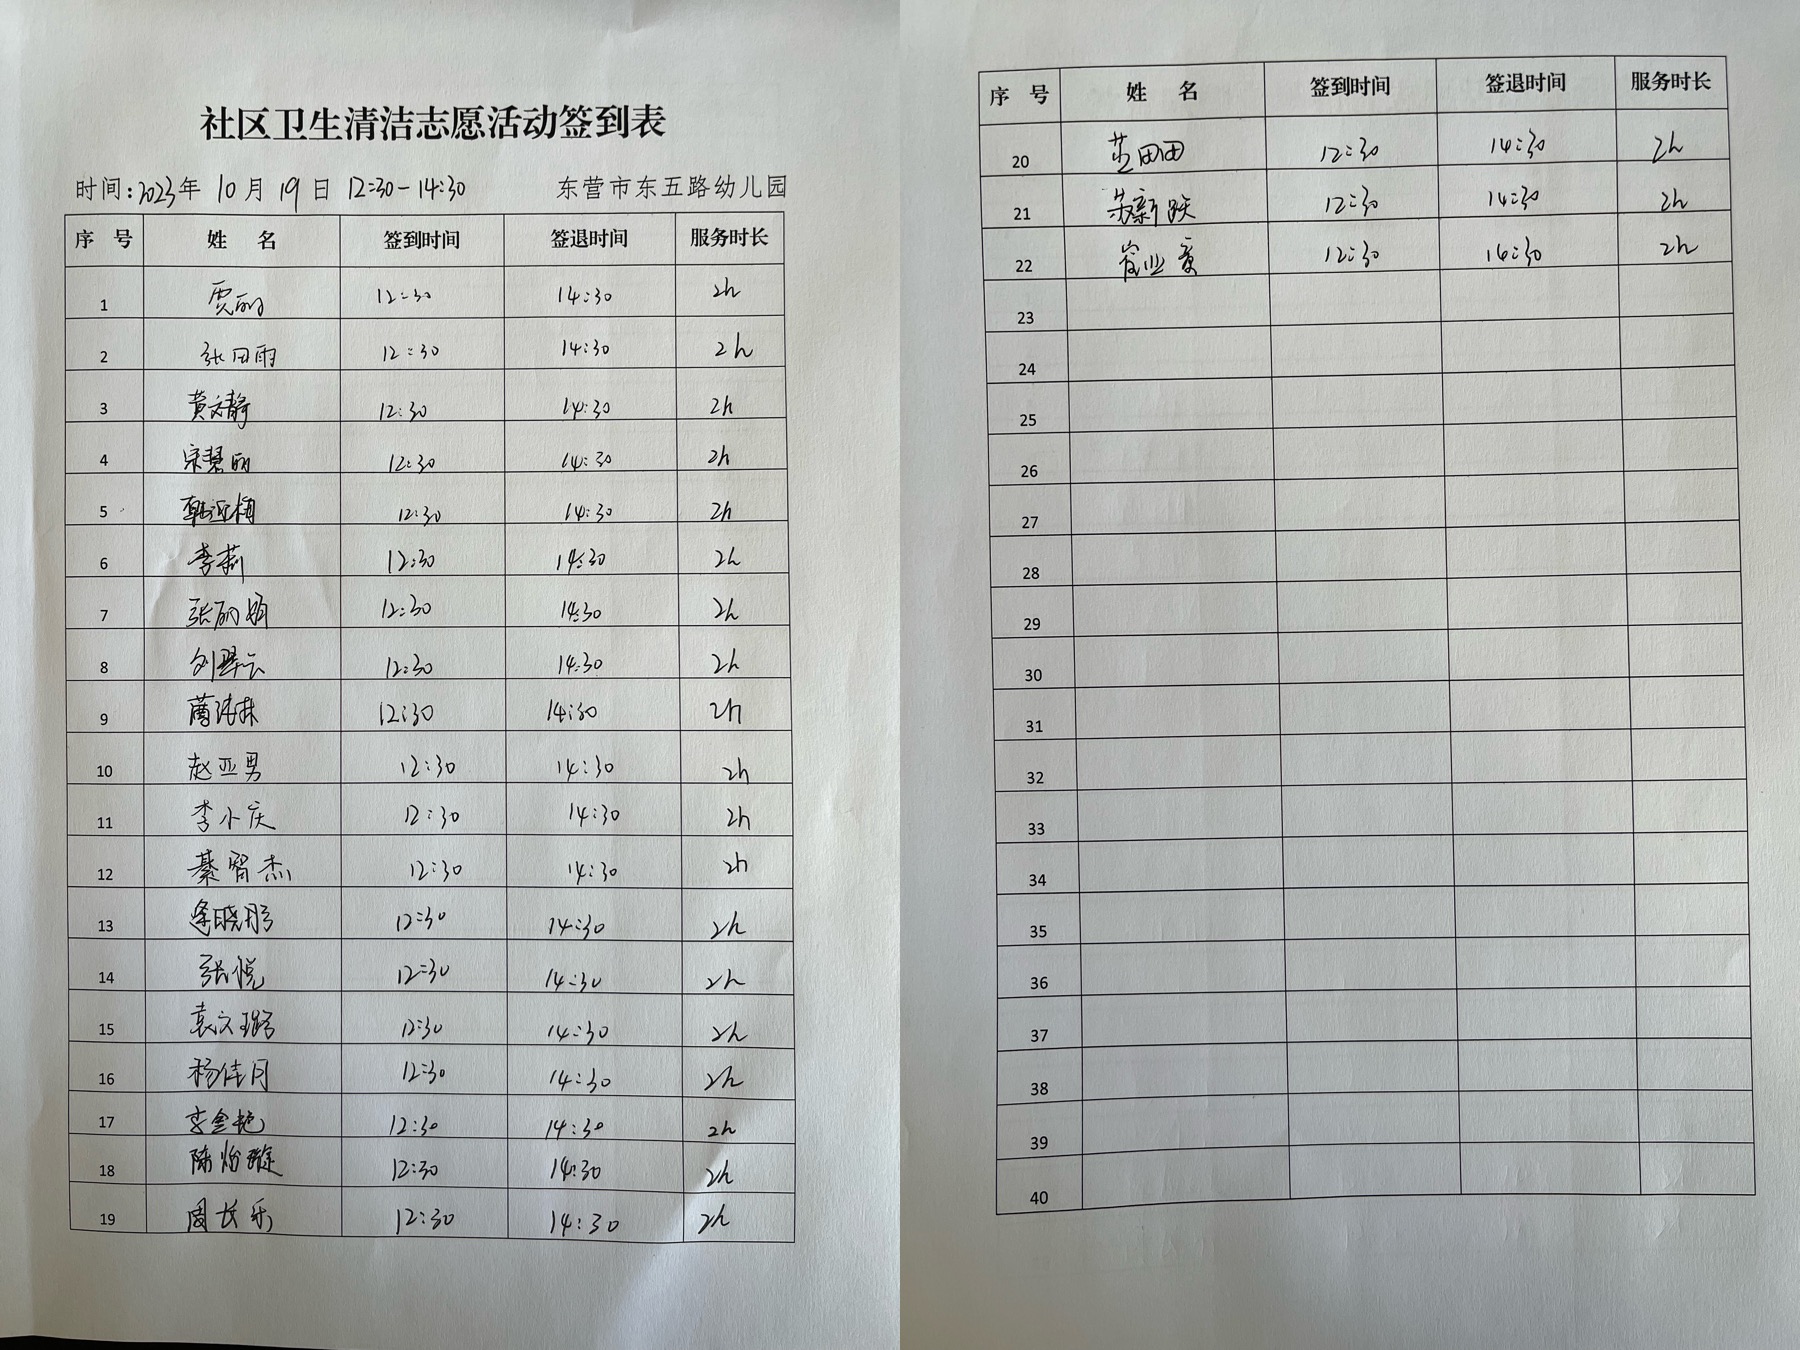 社区卫生清洁志愿活动签到表
时间:2023年 10月 19日 12:30-14:30 东营市东五路幼儿园
序 号 姓 名 签到时间 签退时间 服务时长
1 贾丽 12:30 14:30 2h
2 张田雨 12:30 14:30 2h
3 黄文静 12:30 14:30 2h
4 宋慧丽 12:30 14:30 2h
5 韩迎梅 12:30 14:30 2h
6 李莉 12:30 14:30 2h
7 张丽娟 12:30 14:30 2h
8 刘翠云 12:30 14:30 2h
9 12:30 14:30 2h
10 赵亚男 12:30 14:30 2h
11 李小庆 12:30 14:30 2h
12 綦智杰 12:30 14:30 2h
13 逄晓彤 12:30 14:30 2h
14 张悦 12:30 14:30 2h
15 袁文璐 12:30 14:30 2h
16 杨佳月 12:30 14:30 2h
17 李金艳 12:30 14:30 2h
18 陈怡璇 12:30 14:30 2h
19 周长乐 12:30 14:30 2h
序 号 姓 名 签到时间 签退时间 服务时长
20 田田 12:30 14:30 2h
21 苏新跃 12:30 14:30 2h
22 崔业 12:30 14:30 2h
23
24
25
26
27
28
29
30
31
32
33
34
35
36
37
38
39
40